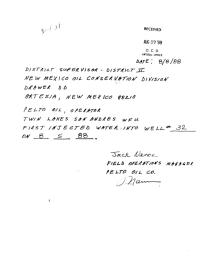 RECEIVED
AUG 12 '88
O. C. D.
DATE: 8/8/88
DISTRICT SUPERVISOR - DISTRICT II
NEW MEXICO OIL CONSERVATION DIVISION
DRAWER DD
ARTESIA, NEW MEXICO 88210
PELTO OIL, OPERATOR
TWIN LAKES SAN ANDRES WFU
FIRST INJECTED WATER INTO WELL # 32
ON 8 5 88.
FIELD OPERATIONS MANAGER
PELTO OIL CO.